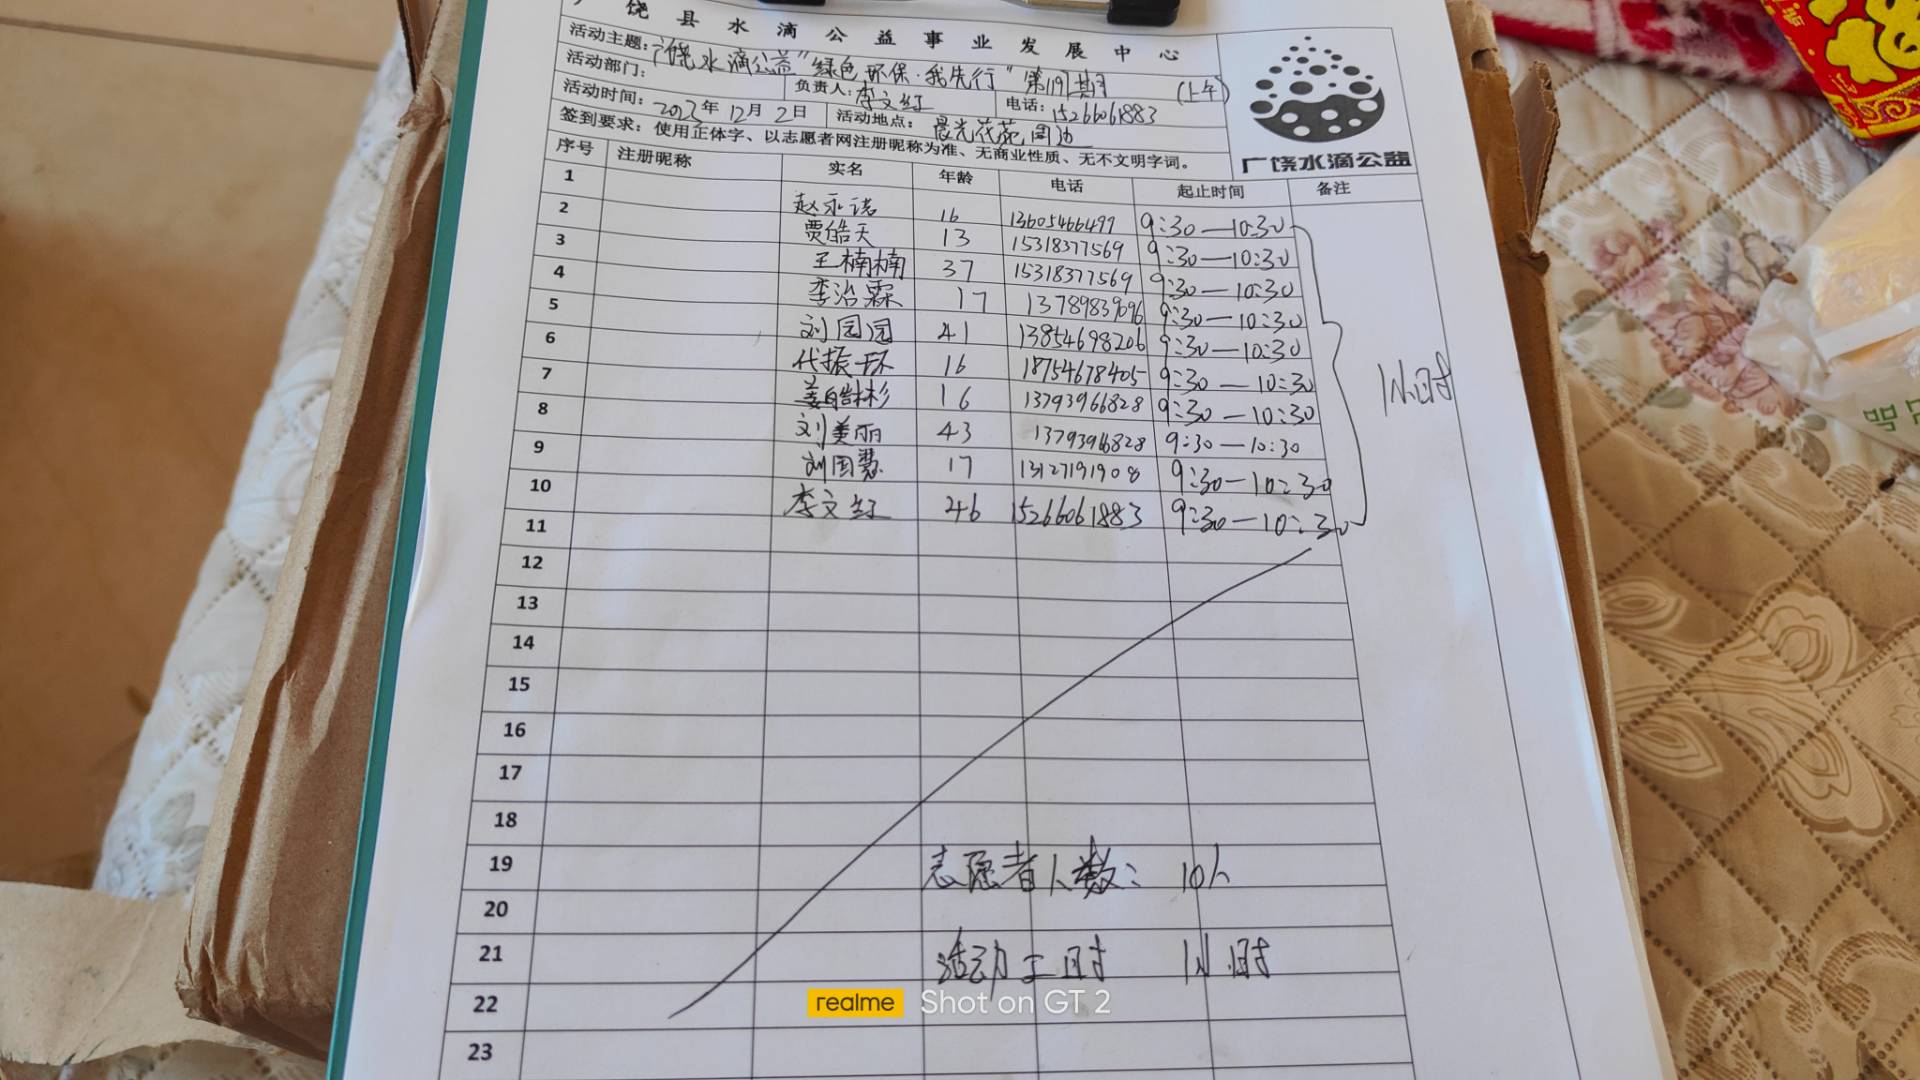 广饶县水滴公益事业发展中心
活动主题: 广饶水滴公益"绿色环保·我先行"第119期 (上午)
活动部门: 负责人: 李文红 电话: 15266061883
活动时间: 2023年 12月 2日 活动地点: 晨光花苑周边
签到要求: 使用正体字、以志愿者网注册昵称为准、无商业性质、无不文明字词。
广饶水滴公益
序号 注册昵称 实名 年龄 电话 起止时间 备注
1 赵永诺 16 13605466499 9:30—10:30
2 贾皓天 13 15318377569 9:30—10:30
3 王楠楠 37 15318377569 9:30—10:30
4 李治霖 17 13789839096 9:30—10:30
5 刘园园 41 13854698206 9:30—10:30
6 代振环 16 18754678405 9:30—10:30
7 姜皓彬 16 13793966828 9:30—10:30
8 刘美丽 43 13793966828 9:30—10:30
9 刘国慧 17 13127191908 9:30—10:30
10 李文红 46 15266061883 9:30—10:30
1小时
11
12
13
14
15
16
17
18
19 志愿者人数: 10人
20
21 活动工时 1小时
22
23
realme Shot on GT 2